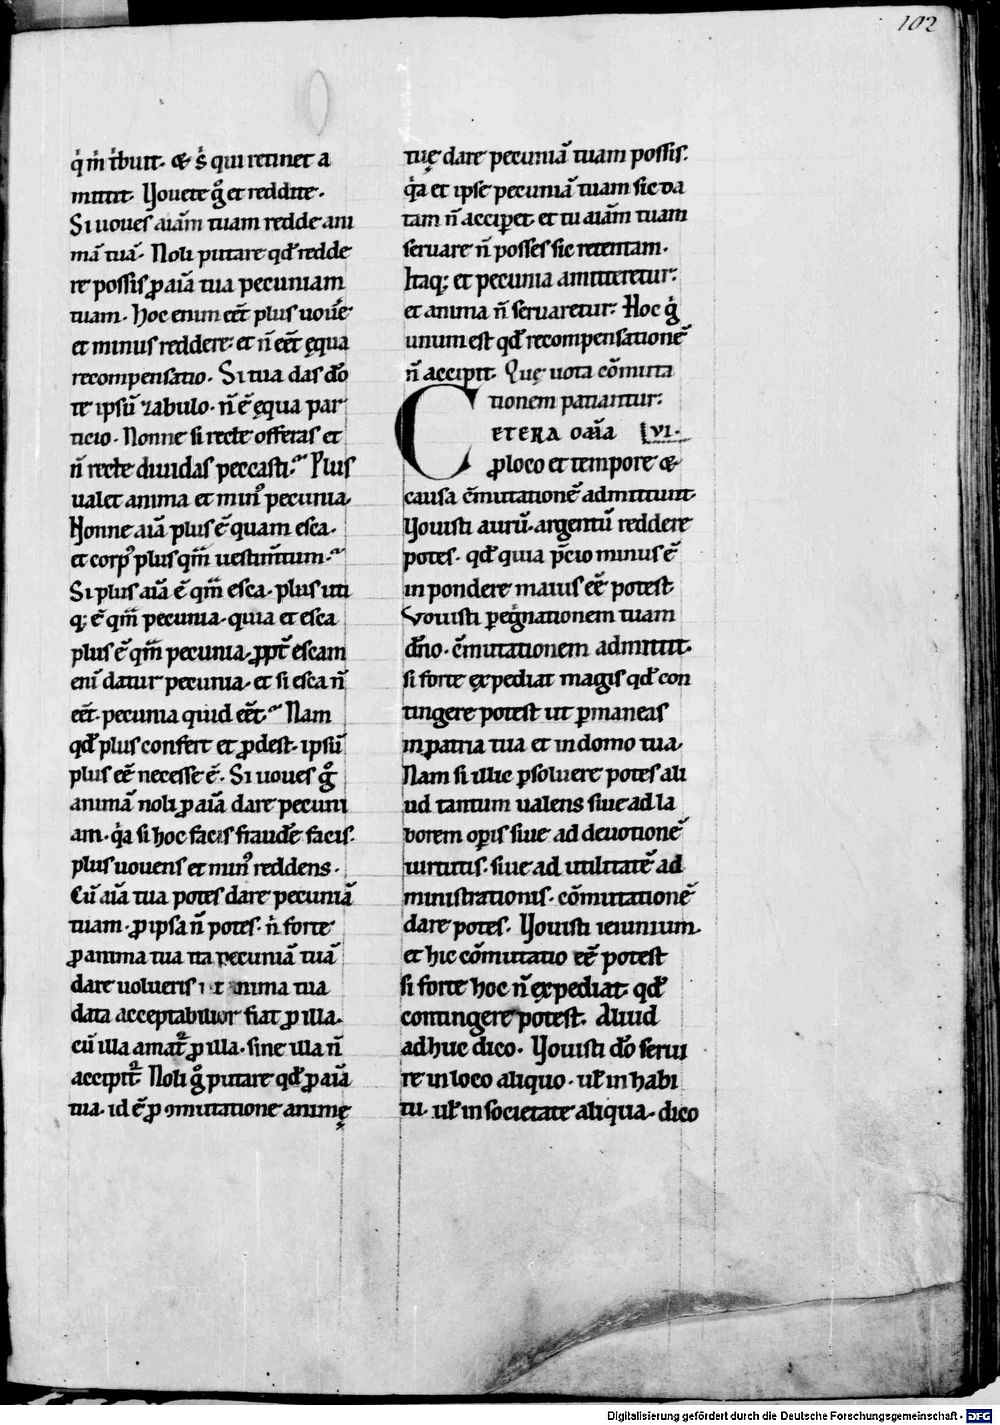 102
q̇m̄ t̄buit. & ṡ qui retinet a
mittit. Vouete g̊ et reddite.
Si uoues aīam tuam redde ani
mā tuā. Noli putare qđ redde
re possis ꝓ aīa tua pecuniam
tuam. hoc enim eēt plus uoue
et minus reddere: et n̄ eēt ęqua
recompensatio. Si tua das do̅
te ipsū zabulo. n̄ ē ęqua par
ticio. Nonne si recte offeras et
n̄ recte diuidas peccasti. Plus
ualet anima et minꝰ pecunia.
Nonne aīa plus ē quam esca.
et corpꝰ plus qm̄ uestim̄tum.
Si plus aīa ē qm̄ esca. plus uti
q; ē qm̄ pecunia. quia et esca
plus ē qm̄ pecunia. ꝓpt̄ escam
eni̅ datur pecunia. et si esca n̄
eēt. pecunia quid eēt. Nam
qđ plus confert et ꝓdest. ipsū
plus eē necesse ē. Si uoues g̊
animā noli ꝓ aīa dare pecuni
am. q̇a si hoc facis fraudē facis.
plus uouens et minꝰ reddens.
Cū aīa tua potes dare pecuniā
tuam. ꝓ ipsa n̄ potes. n̄ forte
ꝓ anima tua ita pecuniā tuā
dare uolueris ut anima tua
data acceptabilior fiat ꝓ illa.
cū illa amat᷑ ꝓ illa. sine illa n̄
accipit᷑. Noli g̊ putare qđ ꝓ aīa
tua. id ē ꝓ ꝯmutatione animę
tuę dare pecuniā tuam possis.
q̇a et ipse pecuniā tuam sic da
tam n̄ acciꝑet. et tu aīam tuam
seruare n̄ posses sic retentam.
Itaq; et pecunia amitteretur:
et anima n̄ seruaretur. Hoc g̊
unum est qđ recompensationē
n̄ accipit. Quę uota cōmuta
tionem patiantur:
CETERA oāīa VI.
ꝓ loco et tempore &
causa c̄mutationē admittunt.
Vouisti aurū. argentū reddere
potes. qđ quia p̄cio minus ē
in pondere maius eē potest
Vouisti ꝑegnationem tuam
dn̄o. c̄mutationem admittit.
si forte expediat magis qđ con
tingere potest ut ꝑmaneas
in patria tua et in domo tua.
Nam si illic ꝑsoluere potes ali
ud tantum ualens siue ad la
borem oꝑis siue ad deuotionē
uirtutis. siue ad utilitatē ad
ministrationis. cōmutationē
dare potes. Vouisti ieiunium.
et hic cōmutatio eē potest
si forte hoc n̄ expediat. qđ
contingere potest. Aliud
adhuc dico. Vouisti do̅ serui
re in loco aliquo. ul̄ in habi
tu. ul̄ in societate aliqua. dico
Digitalisierung gefördert durch die Deutsche Forschungsgemeinschaft - DFG